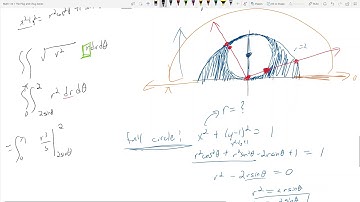 x²+y² = r²cos²θ +
∬ √r² rdrdθ
∫₀^π ∫_{2sinθ}^2 r² drdθ
= ∫₀^π r³/3 |_{2sinθ}^2
r=2
r = ?
full circle! x² + (y-1)² = 1
r²cos²θ + r²sin²θ - 2rsinθ + 1 = 1
r² - 2rsinθ = 0
r² = 2rsinθ